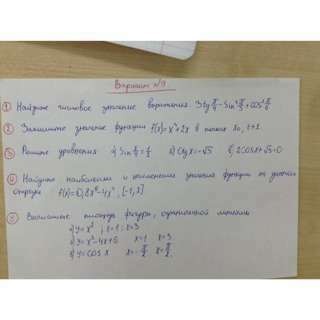 Вариант №9.
① Найдите числовое значение выражения: 3tg π/4 - sin² π/3 + cos² π/6
② Запишите значение функции f(x)=x²+2x в точках x₀, t+1
③ Решите уравнения а) Sin x/2 = 1/2 б) Ctg x=-√3 в) 2cosx+√3=0
④ Найдите наибольшее и наименьшее значения функции на данном
отрезке f(x)=0,8x⁵-4x³, [-1,2]
⑤ Вычислите площадь фигуры, ограниченной линиями
а) y=x³; x=1; x=3
б) y=x²-4x+5 x=1 x=3
в) y=cos x x=-π/2 x=π/2